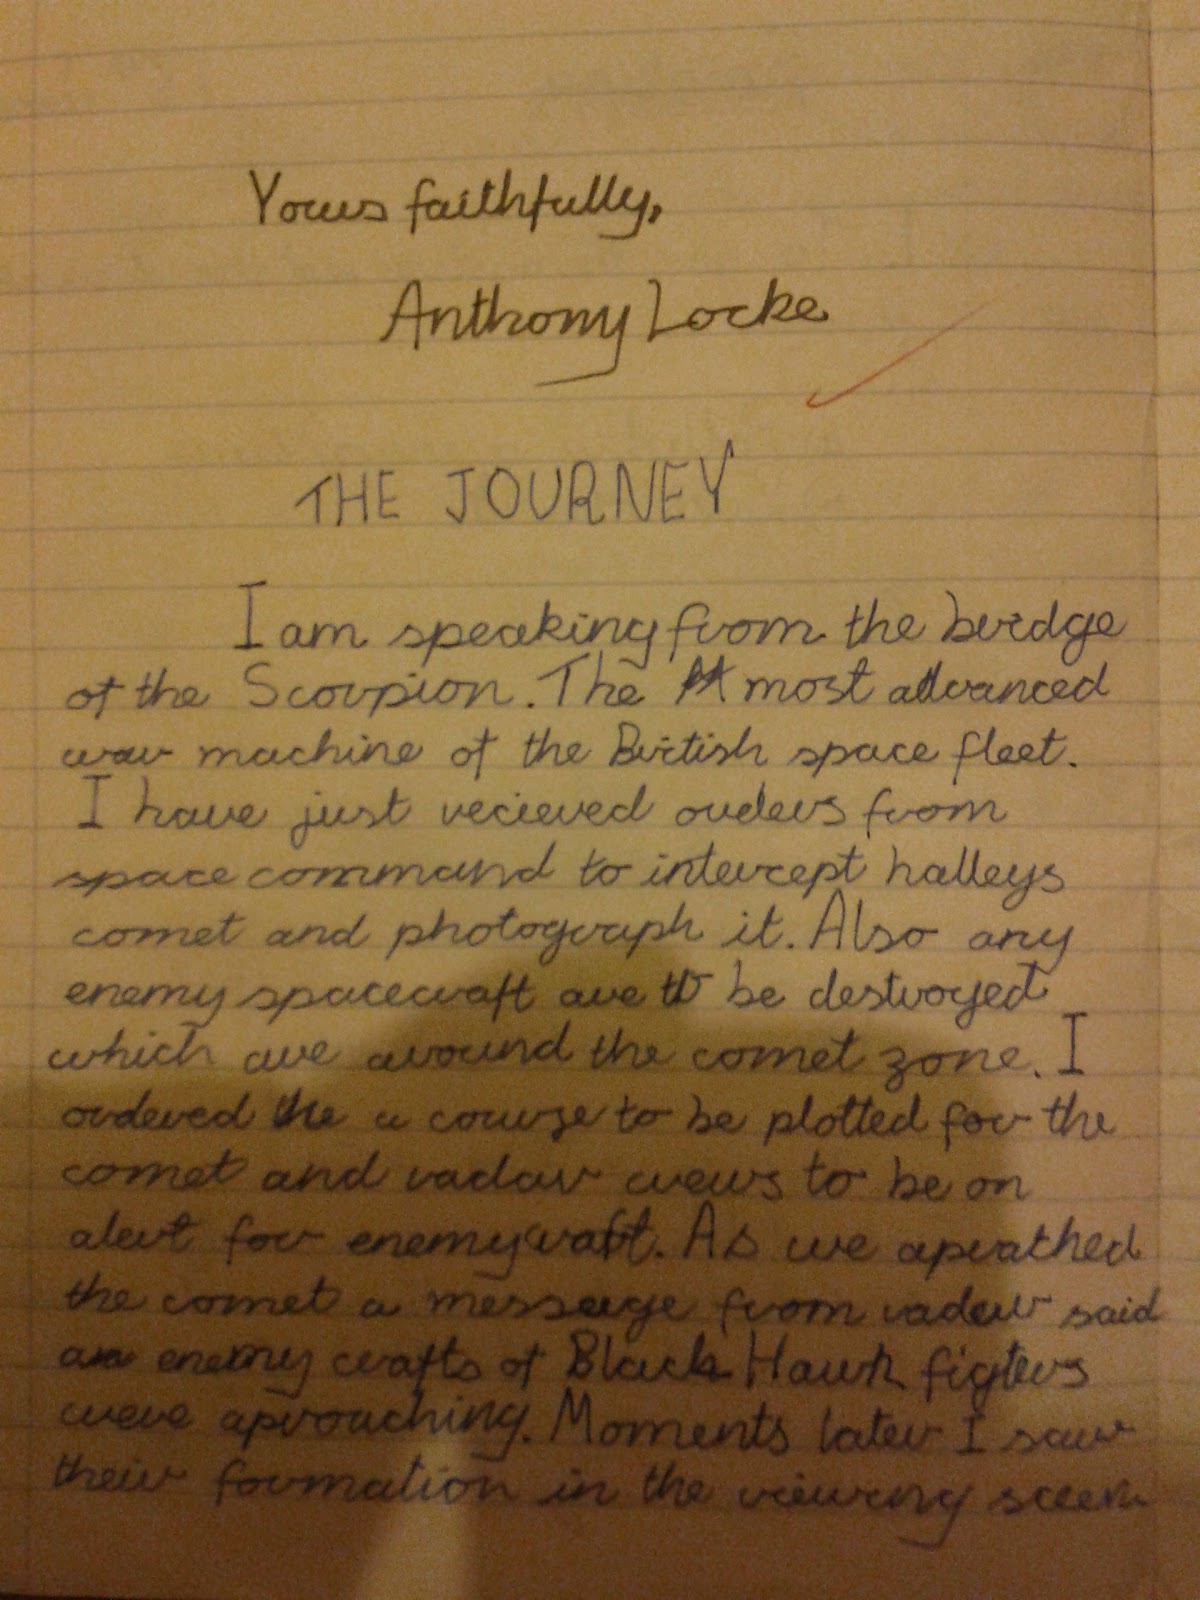 Yours faithfully,
Anthony Locke
THE JOURNEY
I am speaking from the birdge
of the Scorpion. The most advanced
war machine of the Birtish space fleet.
I have just recieved orders from
space command to intercept halleys
comet and photograph it. Also any
enemy spacecraft are to be destroyed
which are around the comet zone. I
ordered a course to be plotted for the
comet and radar crews to be on
alert for enemy craft. As we aprathed
the comet a message from radar said
enemy crafts of Black Hawk figters
were aproaching. Moments later I saw
their formation in the viewing sceen